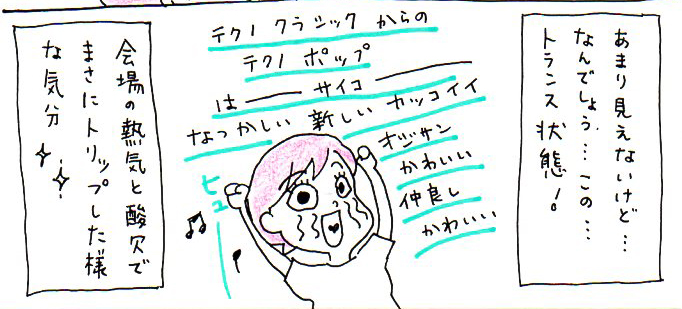 あまり見えないけど…
なんでしょう…この…
トランス状態!
テクノ クラシック からの
テクノ ポップ
は━━ サイコ ━━━
なつかしい 新しい カッコイイ
オジサン
かわいい
仲良し
かわいい
ヒュー
会場の熱気と酸欠で
まさにトリップした様
な気分